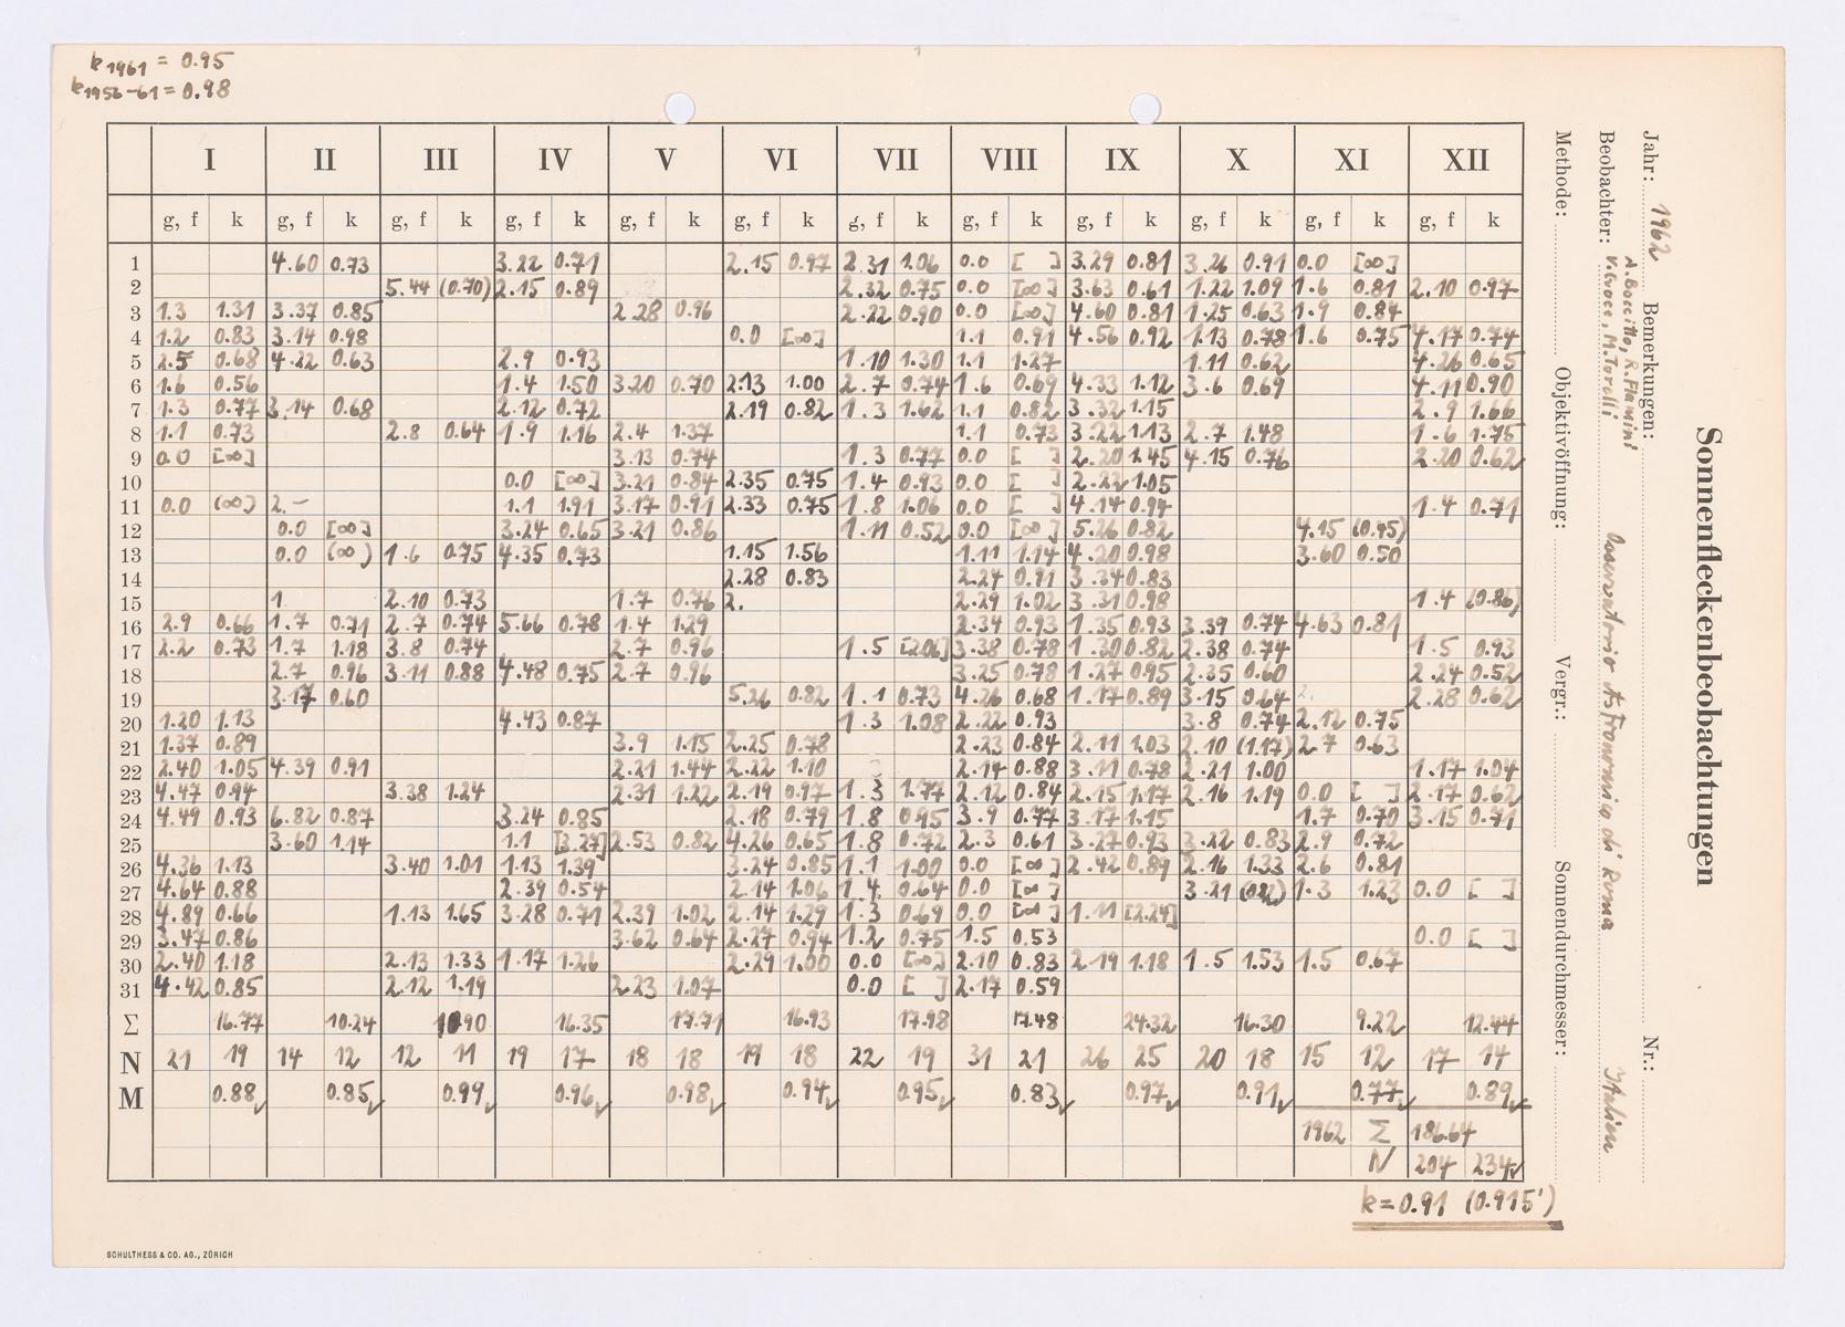 k1961 = 0.95
k1956-61 = 0.98
Sonnenfleckenbeobachtungen
Jahr: 1962 Bemerkungen: Nr.:
Beobachter: V. Croce, M. Torelli Osservatorio Astronomico di Roma Italien
Methode: Objektivöffnung: Vergr.: Sonnendurchmesser:
I II III IV V VI VII VIII IX X XI XII
g, f k g, f k g, f k g, f k g, f k g, f k g, f k g, f k g, f k g, f k g, f k g, f k
1 4.60 0.73 3.22 0.71 2.15 0.97 2.31 1.06 0.0 [ ] 3.29 0.81 3.26 0.91 0.0 [∞]
2 5.44 (0.70) 2.15 0.89 2.32 0.75 0.0 [∞] 3.63 0.61 1.22 1.09 1.6 0.81 2.10 0.97
3 1.3 1.31 3.37 0.85 2.28 0.96 2.22 0.90 0.0 [∞] 4.60 0.81 1.25 0.63 1.9 0.84
4 1.2 0.83 3.14 0.98 0.0 [∞] 1.1 0.91 4.56 0.92 1.13 0.78 1.6 0.75 4.17 0.74
5 2.5 0.68 4.22 0.63 2.9 0.93 1.10 1.30 1.1 1.27 1.11 0.62 4.26 0.65
6 1.6 0.56 1.4 1.50 3.20 0.70 2.13 1.00 2.7 0.74 1.6 0.69 4.33 1.12 3.6 0.69 4.11 0.90
7 1.3 0.77 3.14 0.68 2.12 0.72 2.19 0.82 1.3 1.62 1.1 0.82 3.32 1.15 2.9 1.66
8 1.1 0.73 2.8 0.64 1.9 1.16 2.4 1.37 1.1 0.73 3.22 1.13 2.7 1.48 1.6 1.75
9 0.0 [∞] 3.13 0.74 1.3 0.77 0.0 [ ] 2.20 1.45 4.15 0.76 2.20 0.62
10 0.0 [∞] 3.21 0.84 2.35 0.75 1.4 0.93 0.0 [ ] 2.22 1.05
11 0.0 (∞) 2.– 1.1 1.91 3.17 0.91 2.33 0.75 1.8 1.06 0.0 [ ] 4.14 0.94 1.4 0.71
12 0.0 [∞] 3.24 0.65 3.21 0.86 1.11 0.52 0.0 [∞] 5.26 0.82 4.15 (0.45)
13 0.0 (∞) 1.6 0.75 4.35 0.73 1.15 1.56 1.11 1.14 4.20 0.98 3.60 0.50
14 2.28 0.83 2.24 0.91 3.34 0.83
15 1. 2.10 0.73 1.7 0.76 2. 2.29 1.02 3.31 0.98 1.4 (0.86)
16 2.9 0.66 1.7 0.71 2.7 0.74 5.66 0.78 1.4 1.29 2.34 0.93 1.35 0.93 3.39 0.74 4.63 0.81
17 2.2 0.73 1.7 1.18 3.8 0.74 2.7 0.96 1.5 [2.06] 3.38 0.78 1.30 0.82 2.38 0.74 1.5 0.93
18 2.7 0.96 3.11 0.88 4.48 0.75 2.7 0.96 3.25 0.78 1.27 0.95 2.35 0.60 2.24 0.52
19 3.17 0.60 5.26 0.82 1.1 0.73 4.26 0.68 1.17 0.89 3.15 0.64 2.28 0.62
20 1.20 1.13 4.43 0.87 1.3 1.08 2.22 0.93 3.8 0.74 2.12 0.75
21 1.37 0.89 3.9 1.15 2.25 0.78 2.23 0.84 2.11 1.03 2.10 (1.17) 2.7 0.63
22 2.40 1.05 4.39 0.91 2.21 1.44 2.22 1.10 2.14 0.88 3.11 0.78 2.21 1.00 1.17 1.04
23 4.47 0.94 3.38 1.24 2.31 1.22 2.19 0.97 1.3 1.77 2.12 0.84 2.15 1.17 2.16 1.19 0.0 [ ] 2.17 0.62
24 4.49 0.93 6.82 0.87 3.24 0.85 2.18 0.79 1.8 0.95 3.9 0.77 3.17 1.15 1.7 0.70 3.15 0.71
25 3.60 1.14 1.1 [3.27] 2.53 0.82 4.26 0.65 1.8 0.72 2.3 0.61 3.27 0.93 3.22 0.83 2.9 0.72
26 4.36 1.13 3.40 1.01 1.13 1.39 3.24 0.85 1.1 1.00 0.0 [∞] 2.42 0.89 2.16 1.33 2.6 0.81
27 4.64 0.88 2.39 0.54 2.14 1.06 1.4 0.64 0.0 [∞] 3.21 (0.82) 1.3 1.23 0.0 [ ]
28 4.89 0.66 1.13 1.65 3.28 0.71 2.39 1.02 2.14 1.29 1.3 0.69 0.0 [∞] 1.11 [2.24]
29 3.47 0.86 3.62 0.64 2.27 0.94 1.2 0.75 1.5 0.53 0.0 [ ]
30 2.40 1.18 2.13 1.33 1.17 1.26 2.29 1.00 0.0 [∞] 2.10 0.83 2.19 1.18 1.5 1.53 1.5 0.67
31 4.42 0.85 2.12 1.19 2.23 1.07 0.0 [ ] 2.17 0.59
Σ 16.77 10.24 10.90 16.35 17.71 16.93 17.98 17.48 24.32 16.30 9.22 12.44
N 21 19 14 12 12 11 19 17 18 18 19 18 22 19 31 21 26 25 20 18 15 12 17 14
M 0.88 0.85 0.99 0.96 0.98 0.94 0.95 0.83 0.97 0.91 0.77 0.89
1962 Σ 186.64
N 204 234
k = 0.91 (0.915')
SCHULTHESS & CO. AG., ZÜRICH